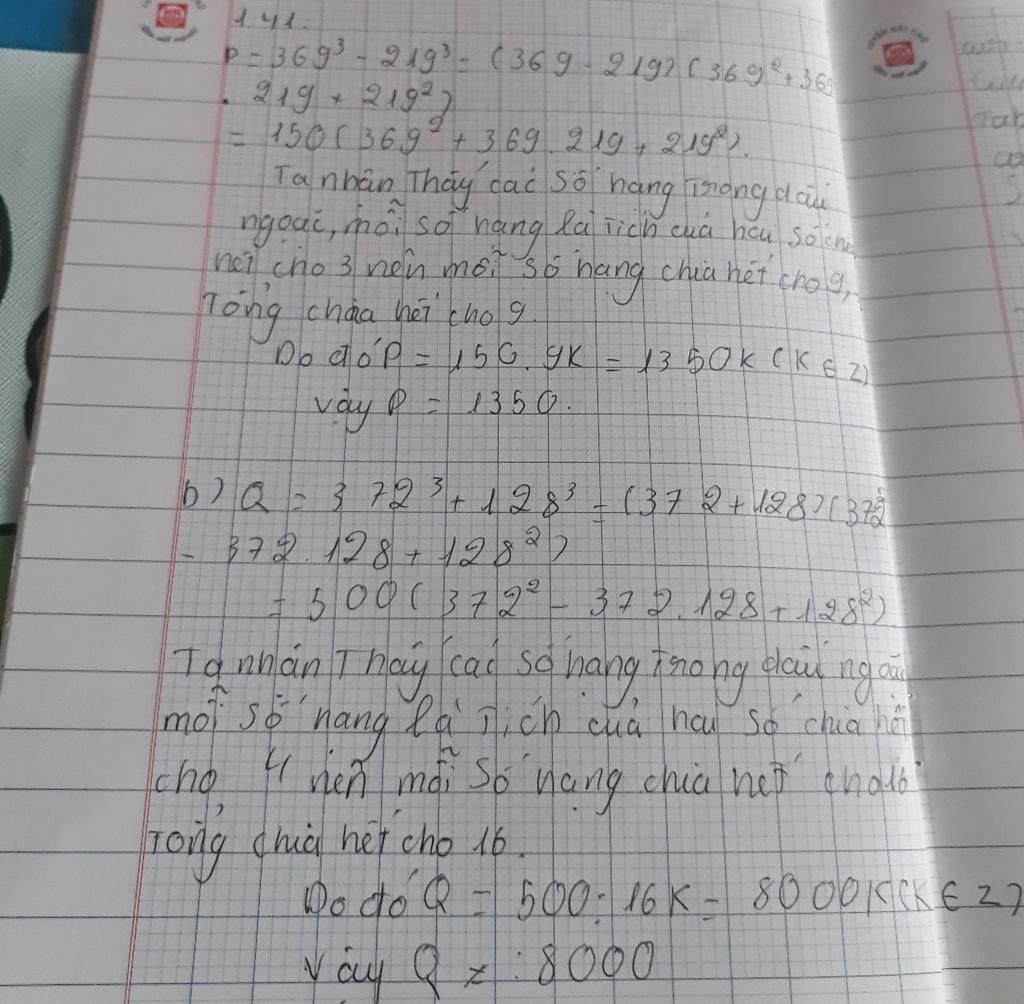 1.41:
P = 369³ - 219³ = (369 - 219)(369² + 369
. 219 + 219²)
= 150(369² + 369 . 219 + 219²).
Ta nhận thấy các số hạng trong dấu
ngoặc, mỗi số hạng là tích của hai số chia
hết cho 3 nên mỗi số hạng chia hết cho 9,
Tổng chia hết cho 9.
Do đó P = 150 . 9K = 1350K (K ∈ Z)
Vậy P = 1350.
b) Q = 372³ + 128³ = (372 + 128)(372²
- 372 . 128 + 128²)
= 500(372² - 372 . 128 + 128²)
Ta nhận thấy các số hạng trong dấu ngoặc
mỗi số hạng là tích của hai số chia hết
cho 4 nên mỗi số hạng chia hết cho 16
Tổng chia hết cho 16.
Do đó Q = 500 . 16K = 8000K (K ∈ Z)
Vậy Q : 8000